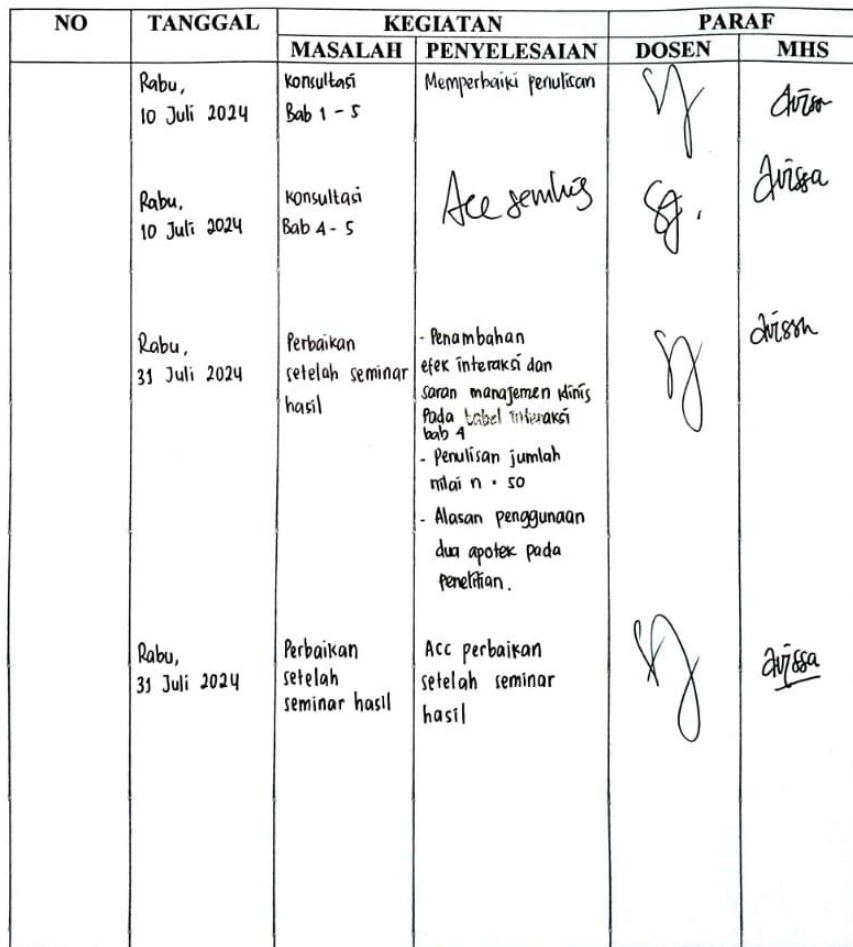 NO TANGGAL KEGIATAN PARAF
MASALAH PENYELESAIAN DOSEN MHS
Rabu,
10 Juli 2024
Konsultasi
Bab 1 - 5
Memperbaiki penulisan
Rabu,
10 Juli 2024
Konsultasi
Bab 4 - 5
Acc semhas
Avissa
Rabu,
31 Juli 2024
Perbaikan
setelah seminar
hasil
- Penambahan
efek interaksi dan
saran manajemen klinis
Pada tabel interaksi
bab 4
- Penulisan jumlah
nilai n = 50
- Alasan penggunaan
dua apotek pada
penelitian.
Avissa
Rabu,
31 Juli 2024
Perbaikan
setelah
seminar hasil
Acc perbaikan
setelah seminar
hasil
Avissa